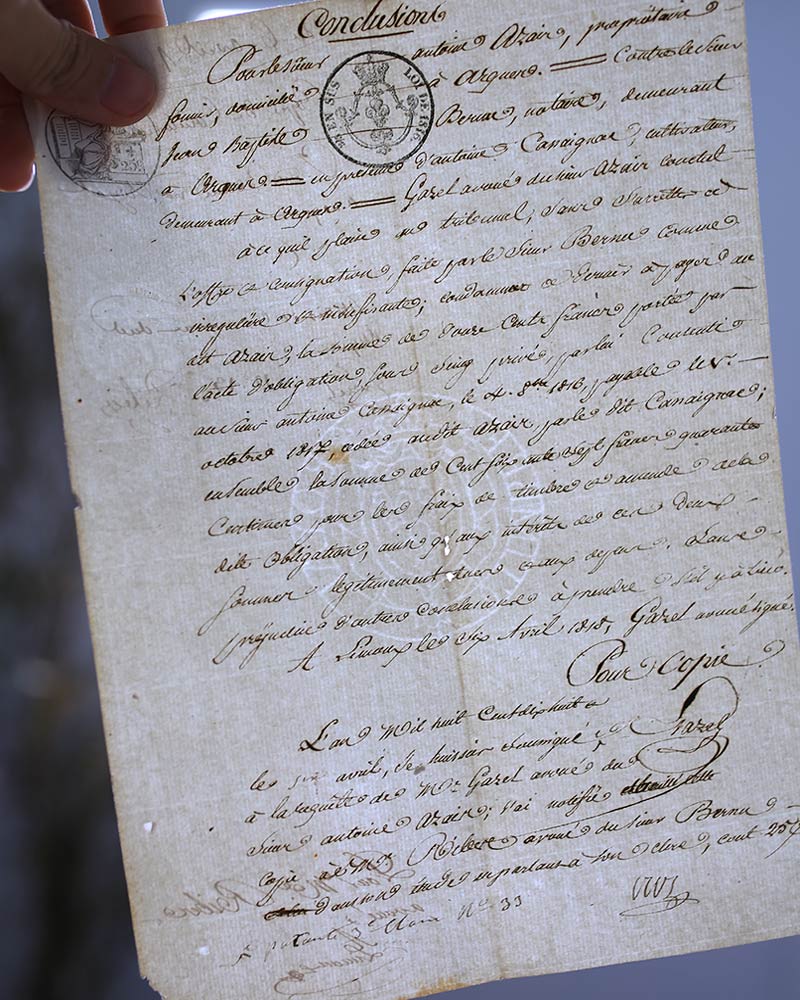 Conclusions
Pour le sieur antoine Azair, propriétaire
foncier, domicilié à Arques. = Contre le Sieur
EN SUS LOI DE 1816.
Jean Baptiste Bernu, notaire, demeurant
à Arques = en présence d'antoine Cansaignac, cultivateur,
demeurant à Arques. = Gazel avoué du sieur Azair conclut
à ce quil plaise au tribunal, sans S'arrêter à
L'offre et consignation faite par le Sieur Bernu comme
irregulière et insufisante; condamner ce dernier à payer au
dit Azair, la somme de douze Cents francs portée par
l'acte d'obligation, sous seing privé, par lui Consenti
au sieur antoine Cansignac, le 4. 8bre 1816, payable le 1er —
octobre 1817, cédée audit Azair, par le dit Cansaignac;
ensemble la somme de Cent soixante Sept francs quarante
Centimes pour les fraix de timbre et amende de la
dite Obligation, ainsi qu'aux intérêts de ces deux
Sommes légitimement dues et aux depens. Sauf
préjudice d'autres Conclusions à prendre s'il y a Lieu.
A Limoux le six Avril 1818, Gazel avoué signé.
Pour Copie
Gazel
L'an Mil huit Cent dix huit &
le six avril, Je huissier Soussigné,
à la requête de Mr Gazel avoué du
Sieur antoine Azair; Vai notifié
Copie à Mr Ribes avoué du sieur Bernu
dans son étude en parlant à son clerc, cout 25
patante Classe No 33